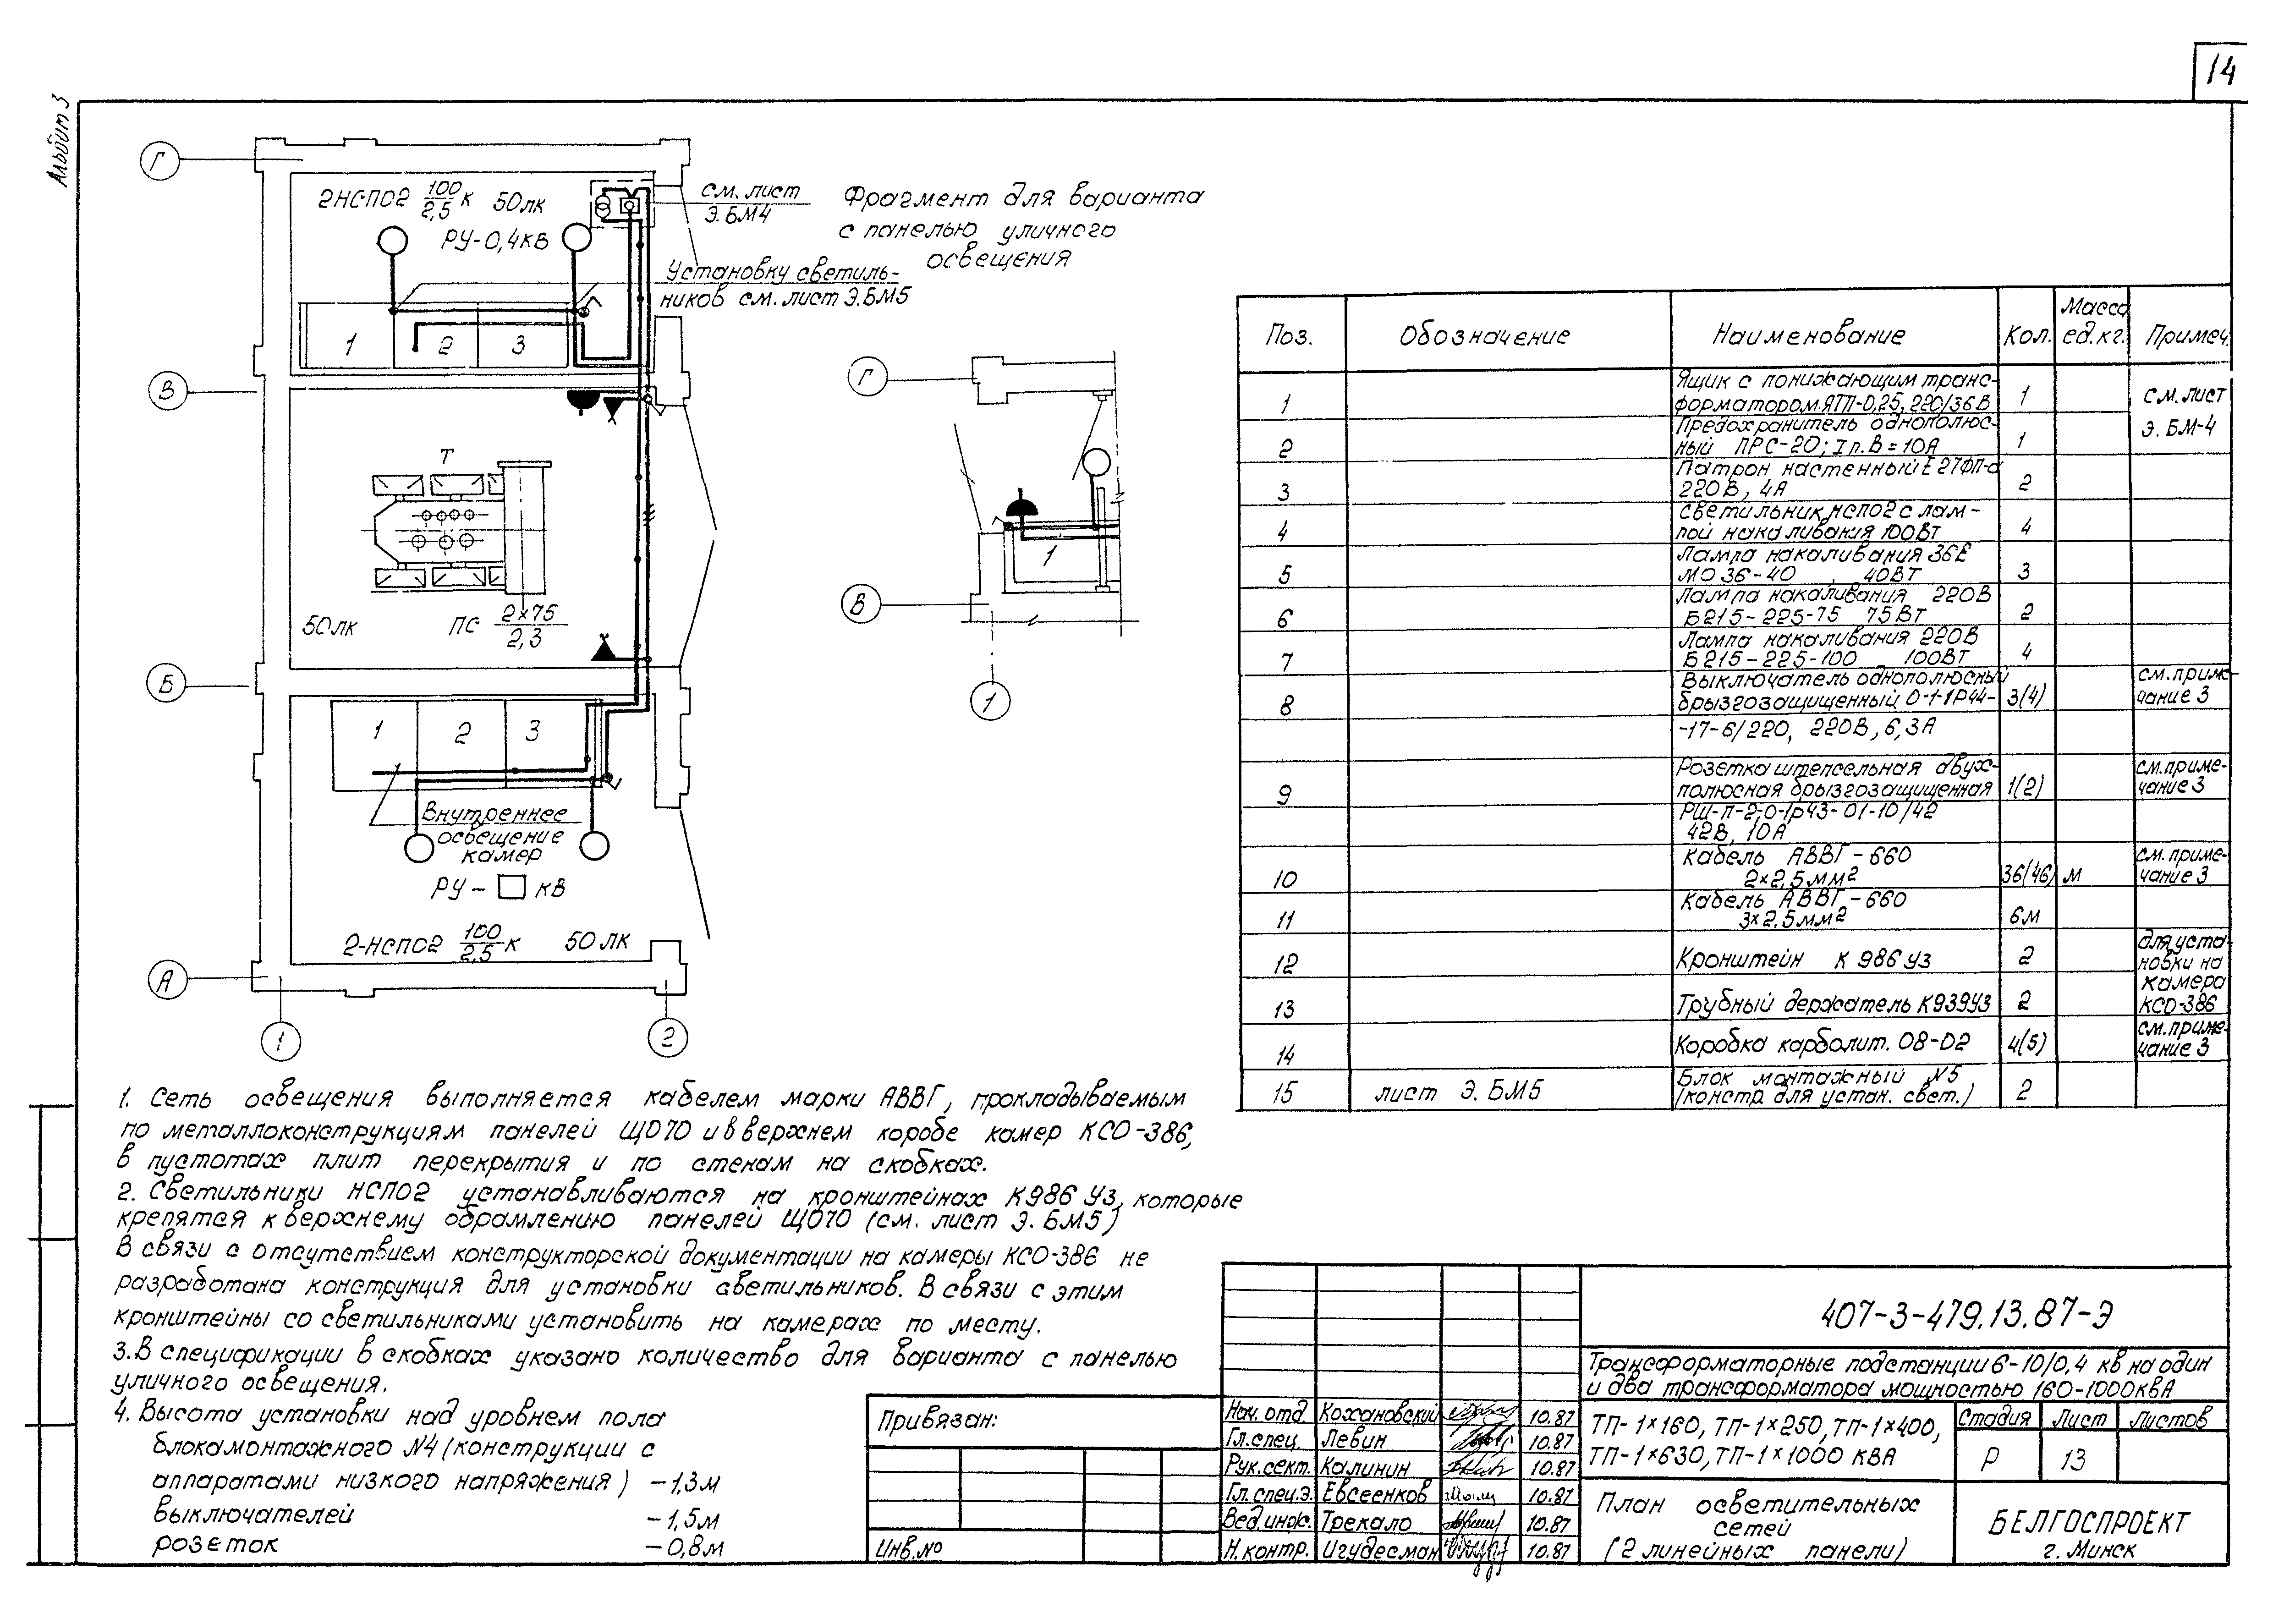 14
Альбом 3
Г
2НСП02 100/2,5 К 50лк
см. лист
Э. БМ4
РУ-0,4кВ
Установку светиль-
ников см. лист Э.БМ5
1 2 3
В
Т
50лк ПС 2×75/2,3
Б
1 2 3
Внутреннее
освещение
камер
РУ-□ кВ
2-НСП02 100/2,5 К 50 лк
А
1 2
Фрагмент для варианта
с панелью уличного
освещения
Г
1
В
1
Поз. Обозначение Наименование Кол. Масса ед.кг. Примеч.
1 Ящик с понижающим транс-
форматором ЯТП-0,25, 220/36В 1 см. лист
2 Предохранитель однополюс-
ный ПРС-20; Iп.в = 10А 1 Э. БМ-4
3 Патрон настенный Е27ФП-
220В, 4А 2
4 Светильник НСП02 с лам-
пой накаливания 100Вт 4
5 Лампа накаливания 36В
МО 36-40, 40Вт 3
6 Лампа накаливания 220В
Б215-225-75 75Вт 2
7 Лампа накаливания 220В
Б215-225-100 100Вт 4
8 Выключатель однополюсный
брызгозащищенный 0-1-1Р44- 3(4) см. приме-
чание 3
-17-6/220, 220В, 6,3А
9 Розетка штепсельная двух-
полюсная брызгозащищенная 1(2) см. приме-
чание 3
РШ-П-2-0-1Р43-01-10/42
42В, 10А
10 Кабель АВВГ-660
2×2,5мм2 36(46) м см. приме-
чание 3
11 Кабель АВВГ-660
3×2,5мм2 6м
12 Кронштейн К 986 У3 2 для уста-
новки на
13 Трубный держатель К939У3 2 камера
КСО-386
14 Коробка карболит. 08-02 4(5) см. приме-
чание 3
15 лист Э. БМ5 Блок монтажный №5
(констр. для устан. свет.) 2
1. Сеть освещения выполняется кабелем марки АВВГ, прокладываемым
по металлоконструкциям панелей ЩО70 и в верхнем коробе камер КСО-386,
в пустотах плит перекрытия и по стенам на скобках.
2. Светильники НСП02 устанавливаются на кронштейнах К986 У3, которые
крепятся к верхнему обрамлению панелей ЩО70 (см. лист Э. БМ5)
В связи с отсутствием конструкторской документации на камеры КСО-386 не
разработана конструкция для установки светильников. В связи с этим
кронштейны со светильниками установить на камерах по месту.
3. В спецификации в скобках указано количество для варианта с панелью
уличного освещения.
4. Высота установки над уровнем пола
блока монтажного №4 (конструкции с
аппаратами низкого напряжения) -1,3м
выключателей -1,5м
розеток -0,8м
Привязан:
Инв.№
Нач. отд Кохановский 10.87
Гл.спец. Левин 10.87
Рук.сект. Калинин 10.87
Гл.спец.э. Евсеенков 10.87
Вед.инж. Трекало 10.87
Н.контр. Игудесман 10.87
407-3-479.13.87-Э
Трансформаторные подстанции 6-10/0,4 кв на один
и два трансформатора мощностью 160-1000кВА
ТП-1×160, ТП-1×250, ТП-1×400,
ТП-1×630, ТП-1×1000 кВА
Стадия Лист Листов
Р 13
План осветительных
сетей
(2 линейных панели)
БЕЛГОСПРОЕКТ
г. Минск